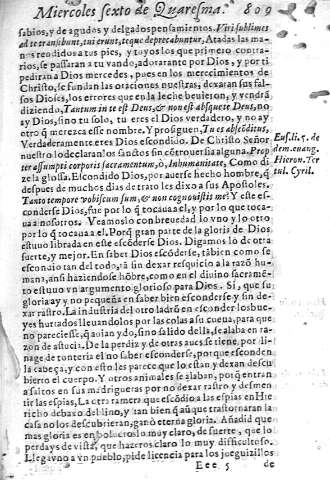 Miercoles sexto de Quaresma. 809
sabios, y de agudos y delgados pensamientos. Viri sublimes
ad te transibunt, tui erunt, teque deprecabuntur, Atadas las ma-
nos rendidos a tus pies, y tuyos los que primero contra-
rios, se passaran a tu vando, adorante por Dios, y por ti
pediran a Dios mercedes, pues en los merecimientos de
Christo, se fundan las oraciones nuestras, dexaran sus fal-
sos Dioses, los errores que en la leche beuieron, y vendrã
diziendo, Tantum in te est Deus, & non est absque te Deus, no
ay Dios, sino tu solo, tu eres el Dios verdadero, y no ay
otro q̃ merezca esse nombre. Y prosiguen, Tu es absconditus,
Verdaderamente eres Dios escondido. De Christo Señor
nuestro lo declaran los sanctos sin cõtrouersia alguna. Prop
ter assumpti corporis sacramentum, ò, Inhumanitate, Como di
ze la glossa. Escondido Dios, por auerse hecho hombre, q̃
despues de muchos dias de trato les dixo a sus Apostoles.
Tanto tempore vobiscum sum, & non cognouistis me? Y este es-
conderse Dios, fue por lo q̃ tocaua a el, y por lo que toca-
ua a nosotros. Veamoslo con breuedad lo vno y lo otro
por lo q̃ tocaua a el. Prõ gran parte de la gloria de Dios
estuuo librada en este escõderse Dios. Digamos lo de otra
suerte, y mejor. En saber Dios escõderse, tãbien como se
escondia tan del todo, rã sin dexar resquicio a la razõ hu-
mana, ansi haziendose hõbre, como en el diuino sacramẽ-
to estuuo vn argumento glorioso para Dios. Si, que su
gloria ay y no pequeña en saber bien esconderse y sin de-
xar rastro. La industria del otro ladrõ en esconder los bue-
yes hurtados lleuandolos por las colas a su cueua, para que
no pareciesse, q̃ auian ydo, sino salido della, se alaba en ra-
zon de astucia. De la perdiz y de otras aues se tiene, por li-
nage de tonteria el no saber esconderse, porque esconden
la cabeça, y con esto les parece que lo estan y dexan descu
bierto el cuerpo. Y otros animales se alaban, porq̃ entran
a saltos en sus madrigueras por no dexar rastro y desmen
tir las espias, La otra ramera que escõdio a las espias en Hie
richo debaxo del lino, y tan bien q̃ aunque trastornaran la
casa no los descubrieran, ganò eterna gloria. Añadid que
mas gloria es en boluerse lo muy claro, de suerte, que lo
perdays de vista, que hazeros claro lo muy difficultoso.
Llega vno a vn pueblo, pide licencia para los jueguillos
Eee 5 de
Eus. li. 5. de
dem. euang.
Hieron. Ter
tul. Cyril.